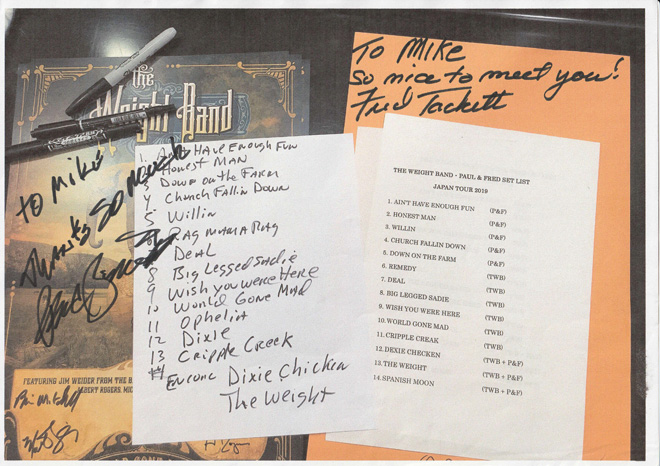 the
Weight Band
TO MIKE
Thanks SO MUCH
FEATURING JIM WEIDER FROM THE B
BERT ROGERS, MIC
TO MIKE
So nice to meet you!
Fred Tackett
1. Ain't HAVE Enough Fun
2 Honest MAN
3 Down on the FARM
4 Church Fallin Down
5 Willin
6 RAG MAMA RAG
7 DEAL
8 Big Legged Sadie
9 Wish you were Here
10 World Gone Mad
11 Ophelia
12 Dixie
13 Cripple Creek
Encore Dixie Chicken
The Weight
THE WEIGHT BAND - PAUL & FRED SET LIST
JAPAN TOUR 2019
1. AIN'T HAVE ENOUGH FUN (P&F)
2. HONEST MAN (P&F)
3. WILLIN (P&F)
4. CHURCH FALLIN DOWN (P&F)
5. DOWN ON THE FARM (P&F)
6. REMEDY (TWB)
7. DEAL (TWB)
8. BIG LEGGED SADIE (TWB)
9. WISH YOU WERE HERE (TWB)
10. WORLD GONE MAD (TWB)
11. CRIPPLE CREAK (TWB)
12. DIXIE CHECKEN (TWB + P&F)
13. THE WEIGHT (TWB + P&F)
14. SPANISH MOON (TWB + P&F)